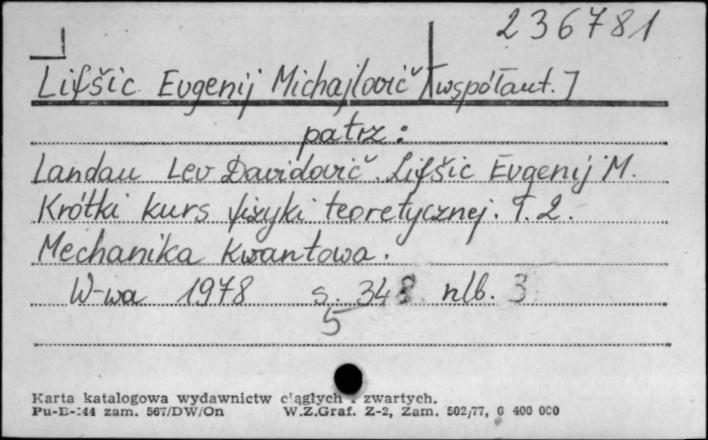 236781
Lifšic Evgenij Michajlovič [współaut.]
patrz:
Landau Lev Davidovič. Lifšic Evgenij M.
Krótki kurs fizyki teoretycznej. T. 2.
Mechanika kwantowa.
W-wa 1978 s. 348 nlb. 3
5
Karta katalogowa wydawnictw ciągłych i zwartych.
Pu-B-144 zam. 567/DW/On W.Z.Graf. Z-2, Zam. 502/77, 6 400 000